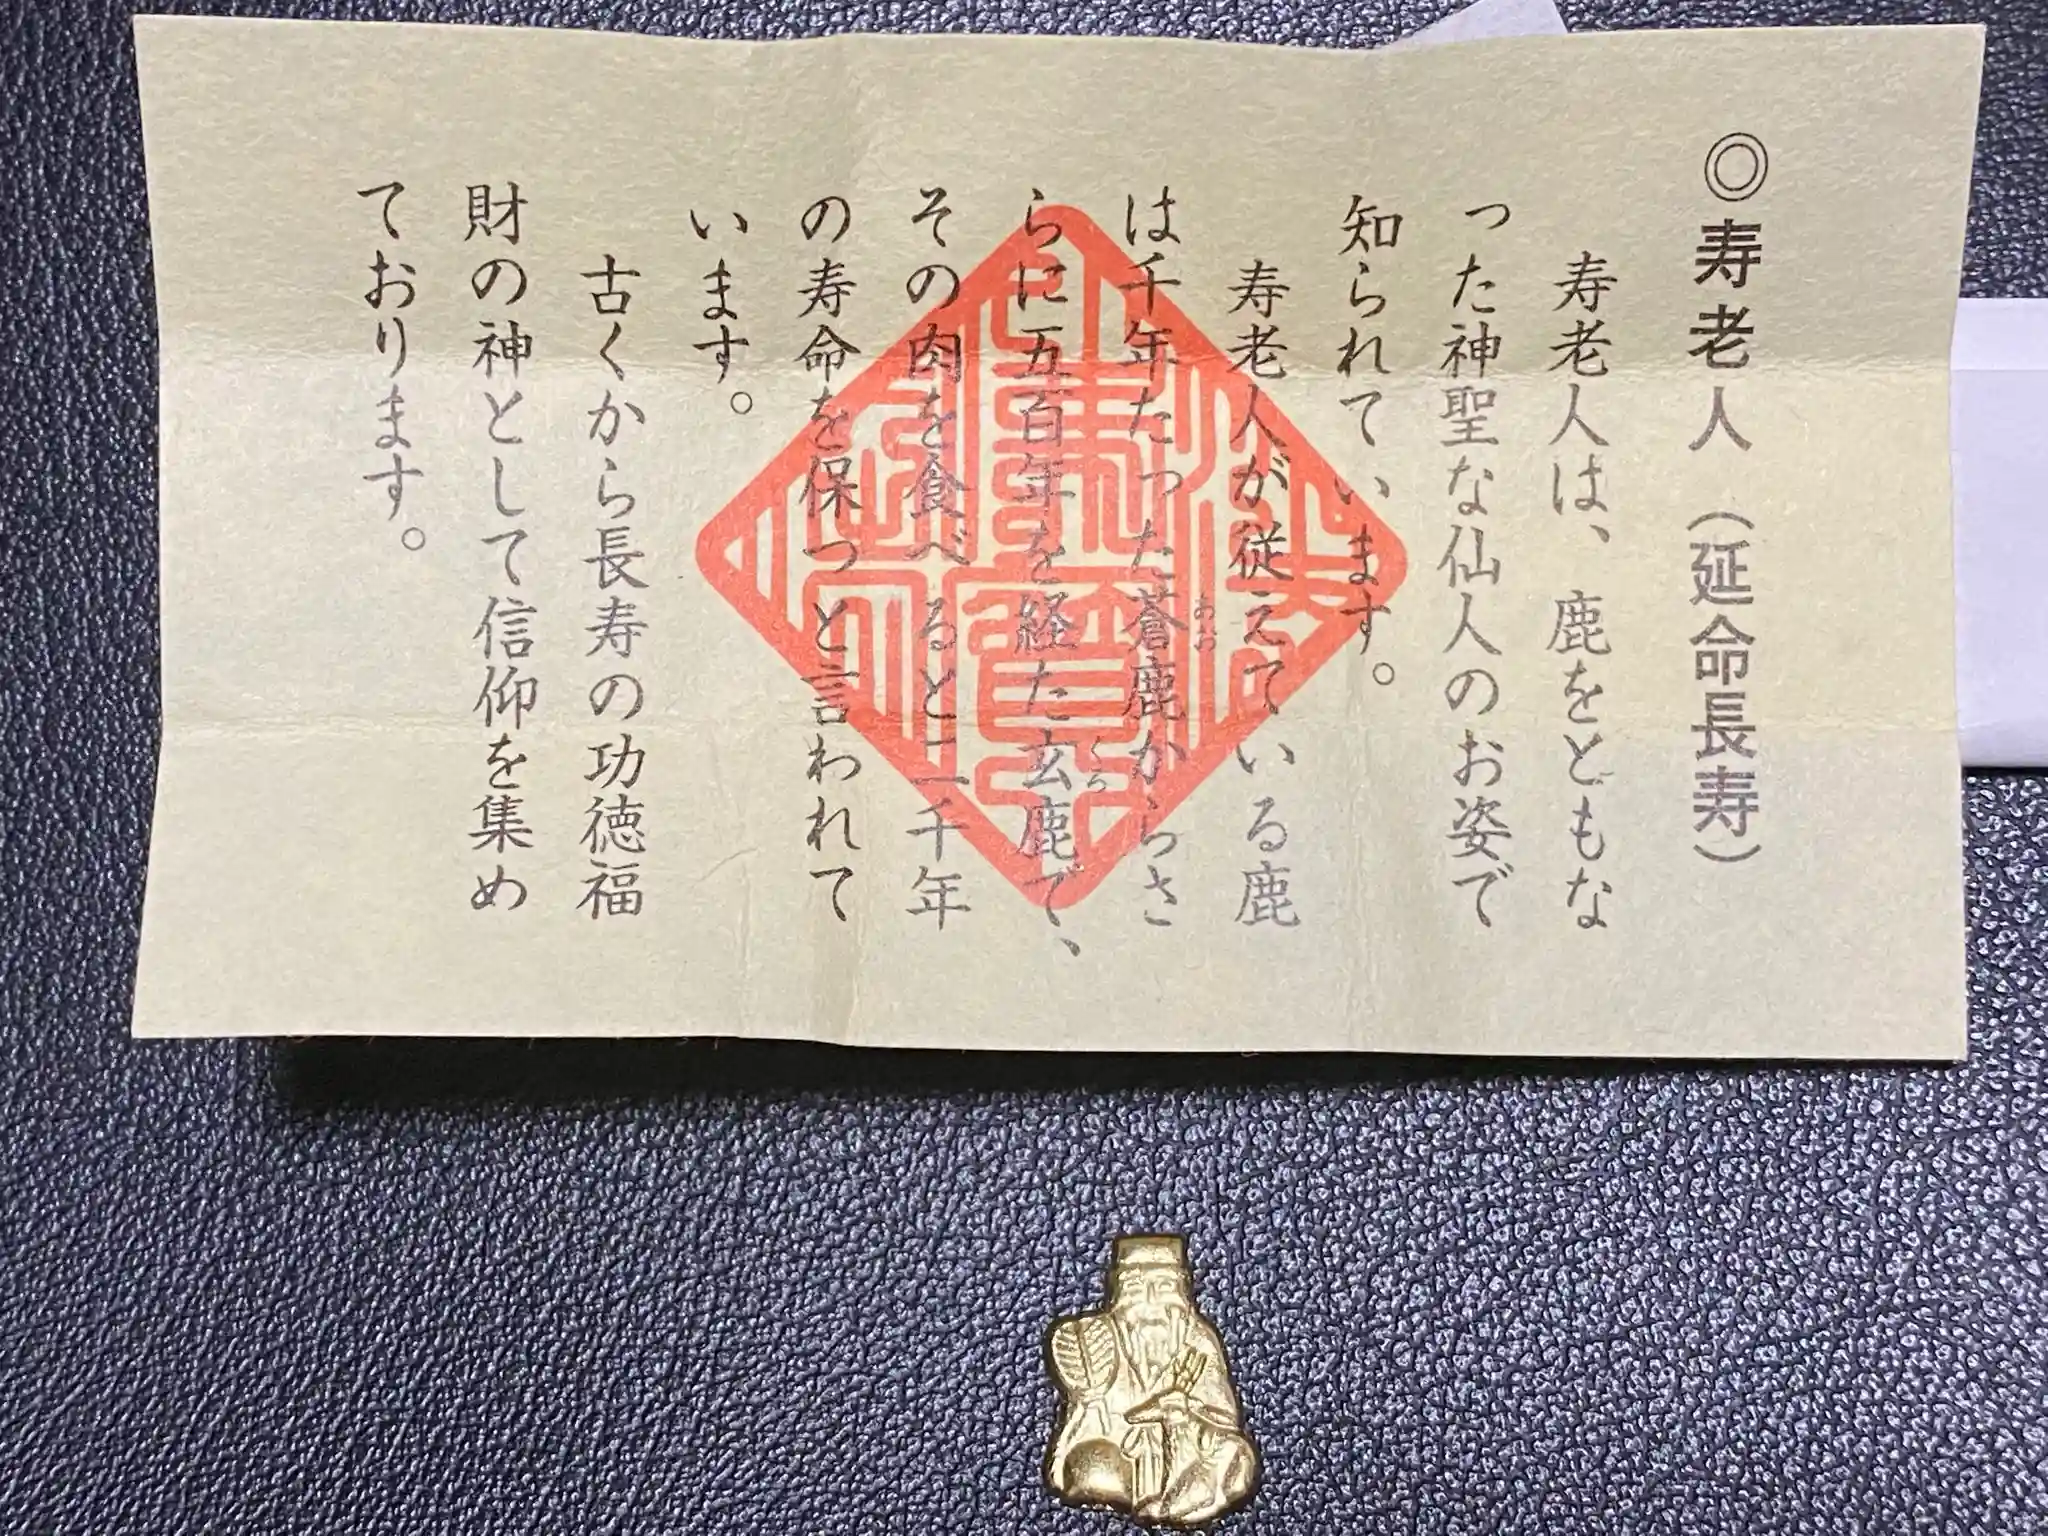 ◎寿老人（延命長寿）
寿老人は、鹿をともな
った神聖な仙人のお姿で
知られています。
寿老人が従えている鹿
は千年たった蒼鹿からさ
あお
らに五百年を経た玄鹿で、
くろ
その肉を食べると二千年
の寿命を保つと言われて
います。
古くから長寿の功徳福
財の神として信仰を集め
ております。